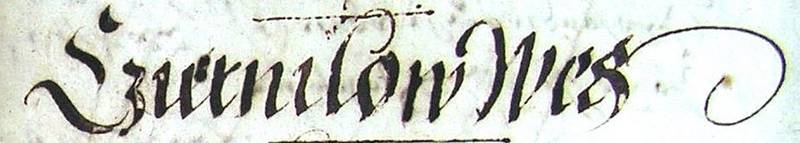 Cziernilow Wes